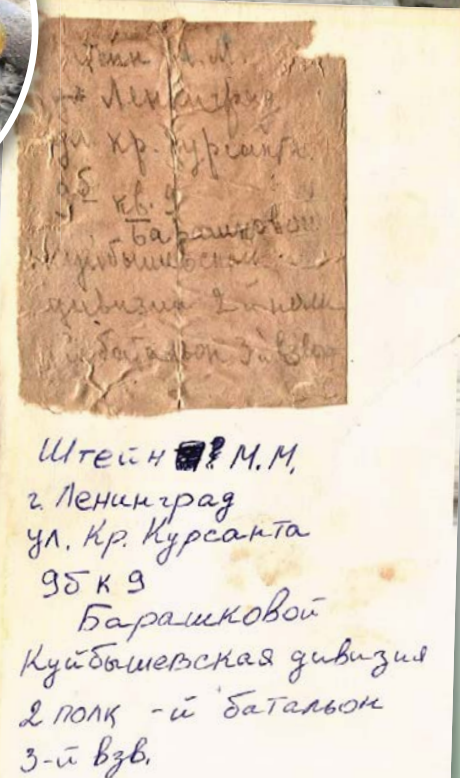 М.
Ленинград
ул кр. Курсанта
9б кв. 9
Барашковой
Куйбышевской
дивизия 2й полк
й батальон 3й взвод
Штейн М.М.
г. Ленинград
ул. Кр. Курсанта
9б к 9
Барашковой
Куйбышевская дивизия
2 полк -й батальон
3-й взв.